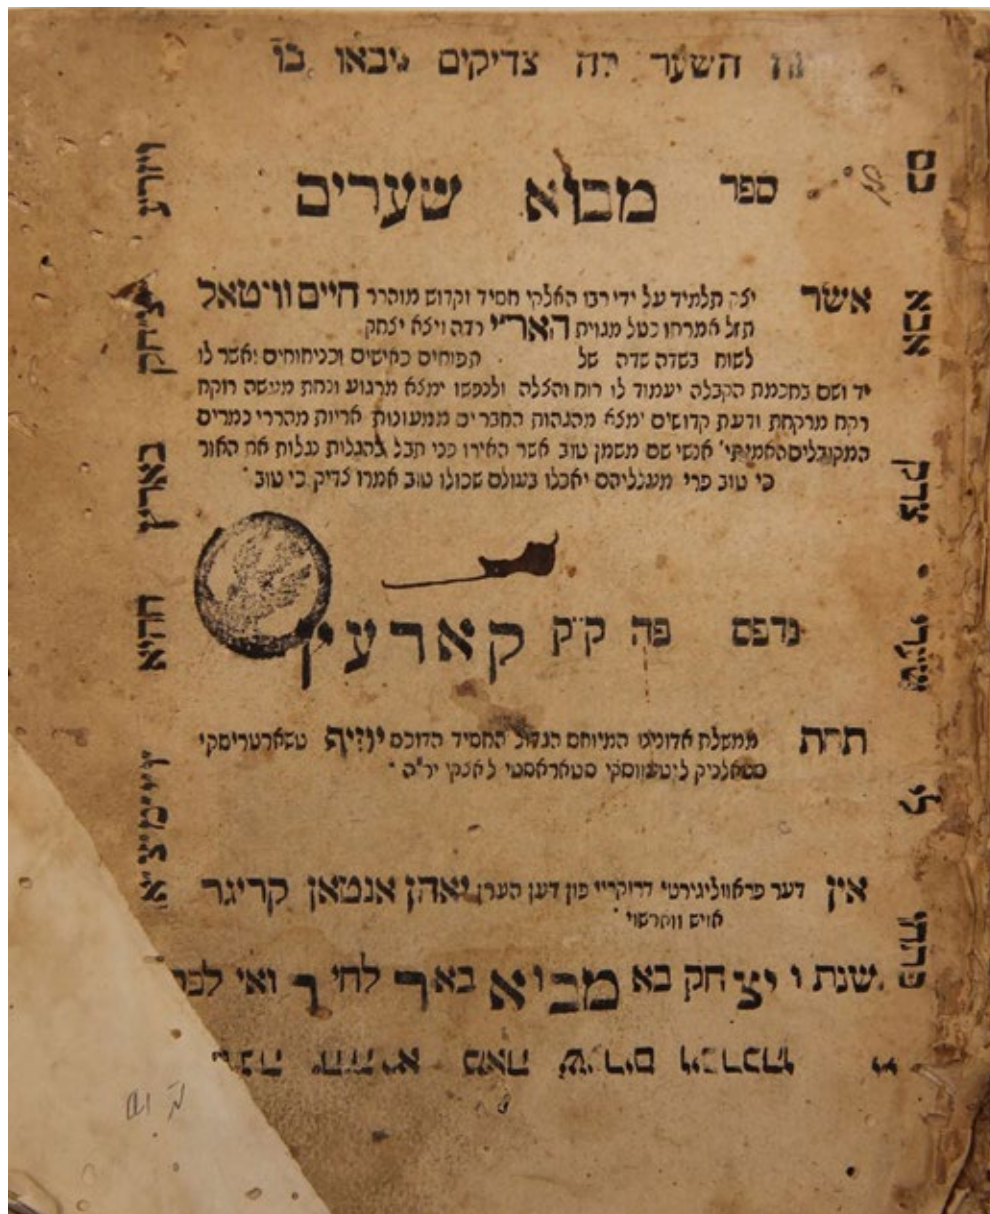 זה השער לה׳ צדיקים יבאו בו
ספר מבוא שערים
אשר יצק תלמיד על ידי רבו האלקי חסיד וקדוש מוהרר חיים וויטאל
תזל אמרתו כטל מגוית האר״י רדה ויצא יצחק
לשוח בשדה שדה של תפוחים כאישים וכניחוחים ואשר לו
יד ושם בחכמת הקבלה יעמוד לו רוח והצלה ולנפשו ימצא מרגוע ונחת מעשה רוקח
רקח מרקחת ודעת קדושים ימצא מהגהות החברים ממעונות אריות מהררי נמרים
המקובלים האמיתי׳ אנשי שם משמן טוב אשר האירו פני תבל להגלות נגלות את האור
כי טוב פרי מעלליהם יאכלו בעולם שכולו טוב אמרו צדיק כי טוב
נדפס פה ק״ק קארעץ
תחת ממשלת אדונינו המיוחס הגדול החסיד הדוכס יוזיף טשארטריסקי
סטאלניק ליטעווסקי סטאראסטי לאנקי יר״ה
אין דער פראוויליגירטי דרוקריי פון דען הערן יאהן אנטאן קריגר
אויש ווארשוי
שנת ויצחק בא מבוא באר לחי ר ואי
פתחו לי שערי צדק אבא בם
ויזרע יצחק בארץ ההיא וימצא
בשנה ההיא מאה שערים ויברכהו